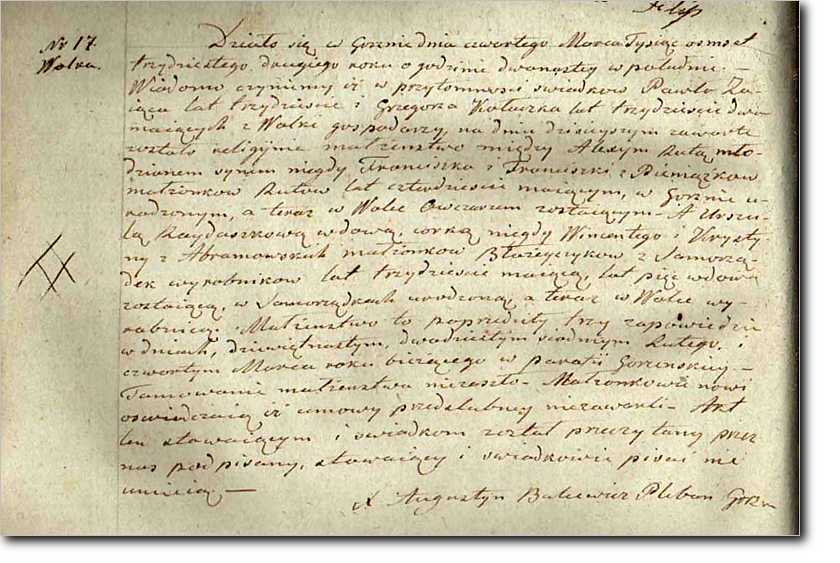 Nr 17.
Wolka.
Działo się w Gorznie dnia czwartego Marca Tysiąc osmset
trzydziestego drugiego roku o godzinie dwunastey w południe. –
Wiadomo czyniemy iż w przytomności swiadkow Pawła Za-
iąca lat trzydzieście i Grzegorza Kołaszka lat trzydzieście dwa
maiących z Wolki gospodarzy, na dniu dzisieyszym zawarte
zostało religijne małzenstwo między Alexym Rutą mło-
dzianem synem niegdy Franciszka i Franciszki z
małzonkow Rutow lat czterdzieście maiącym, w Gorznie u-
rodzonym, a teraz w Wolce Owczarzem zostaiącym – A Urszu-
lą Raydaszkową wdową, corką niegdy Wincentego i Krysty-
ny z Abramowskich małzonkow Błażeyczykow z Samorzą-
dek wyrobnikow lat trzydzieście maiącą, lat pięć wdową
zostaiącą, w Samorządkach urodzoną, a teraz w Wolce wy-
robnicą. Małzenstwo to poprzedziły trzy zapowiedzi
w dniach, dziewiętnastym, dwudziestym siodmym Lutego, i
czwartym Marca roku bieżącego w parafii Gorzenskiey –
Tamowanie małzenstwa niezaszło – Małzonkowie nowi
oswiadczaią iż umowy przedslubney niezawarli – Akt
ten stawaiącym i swiadkom został przeczytany przez
nas podpisany, stawaiący i swiadkowie pisać nie
umieią –
X Augustyn Pleban Gorzn